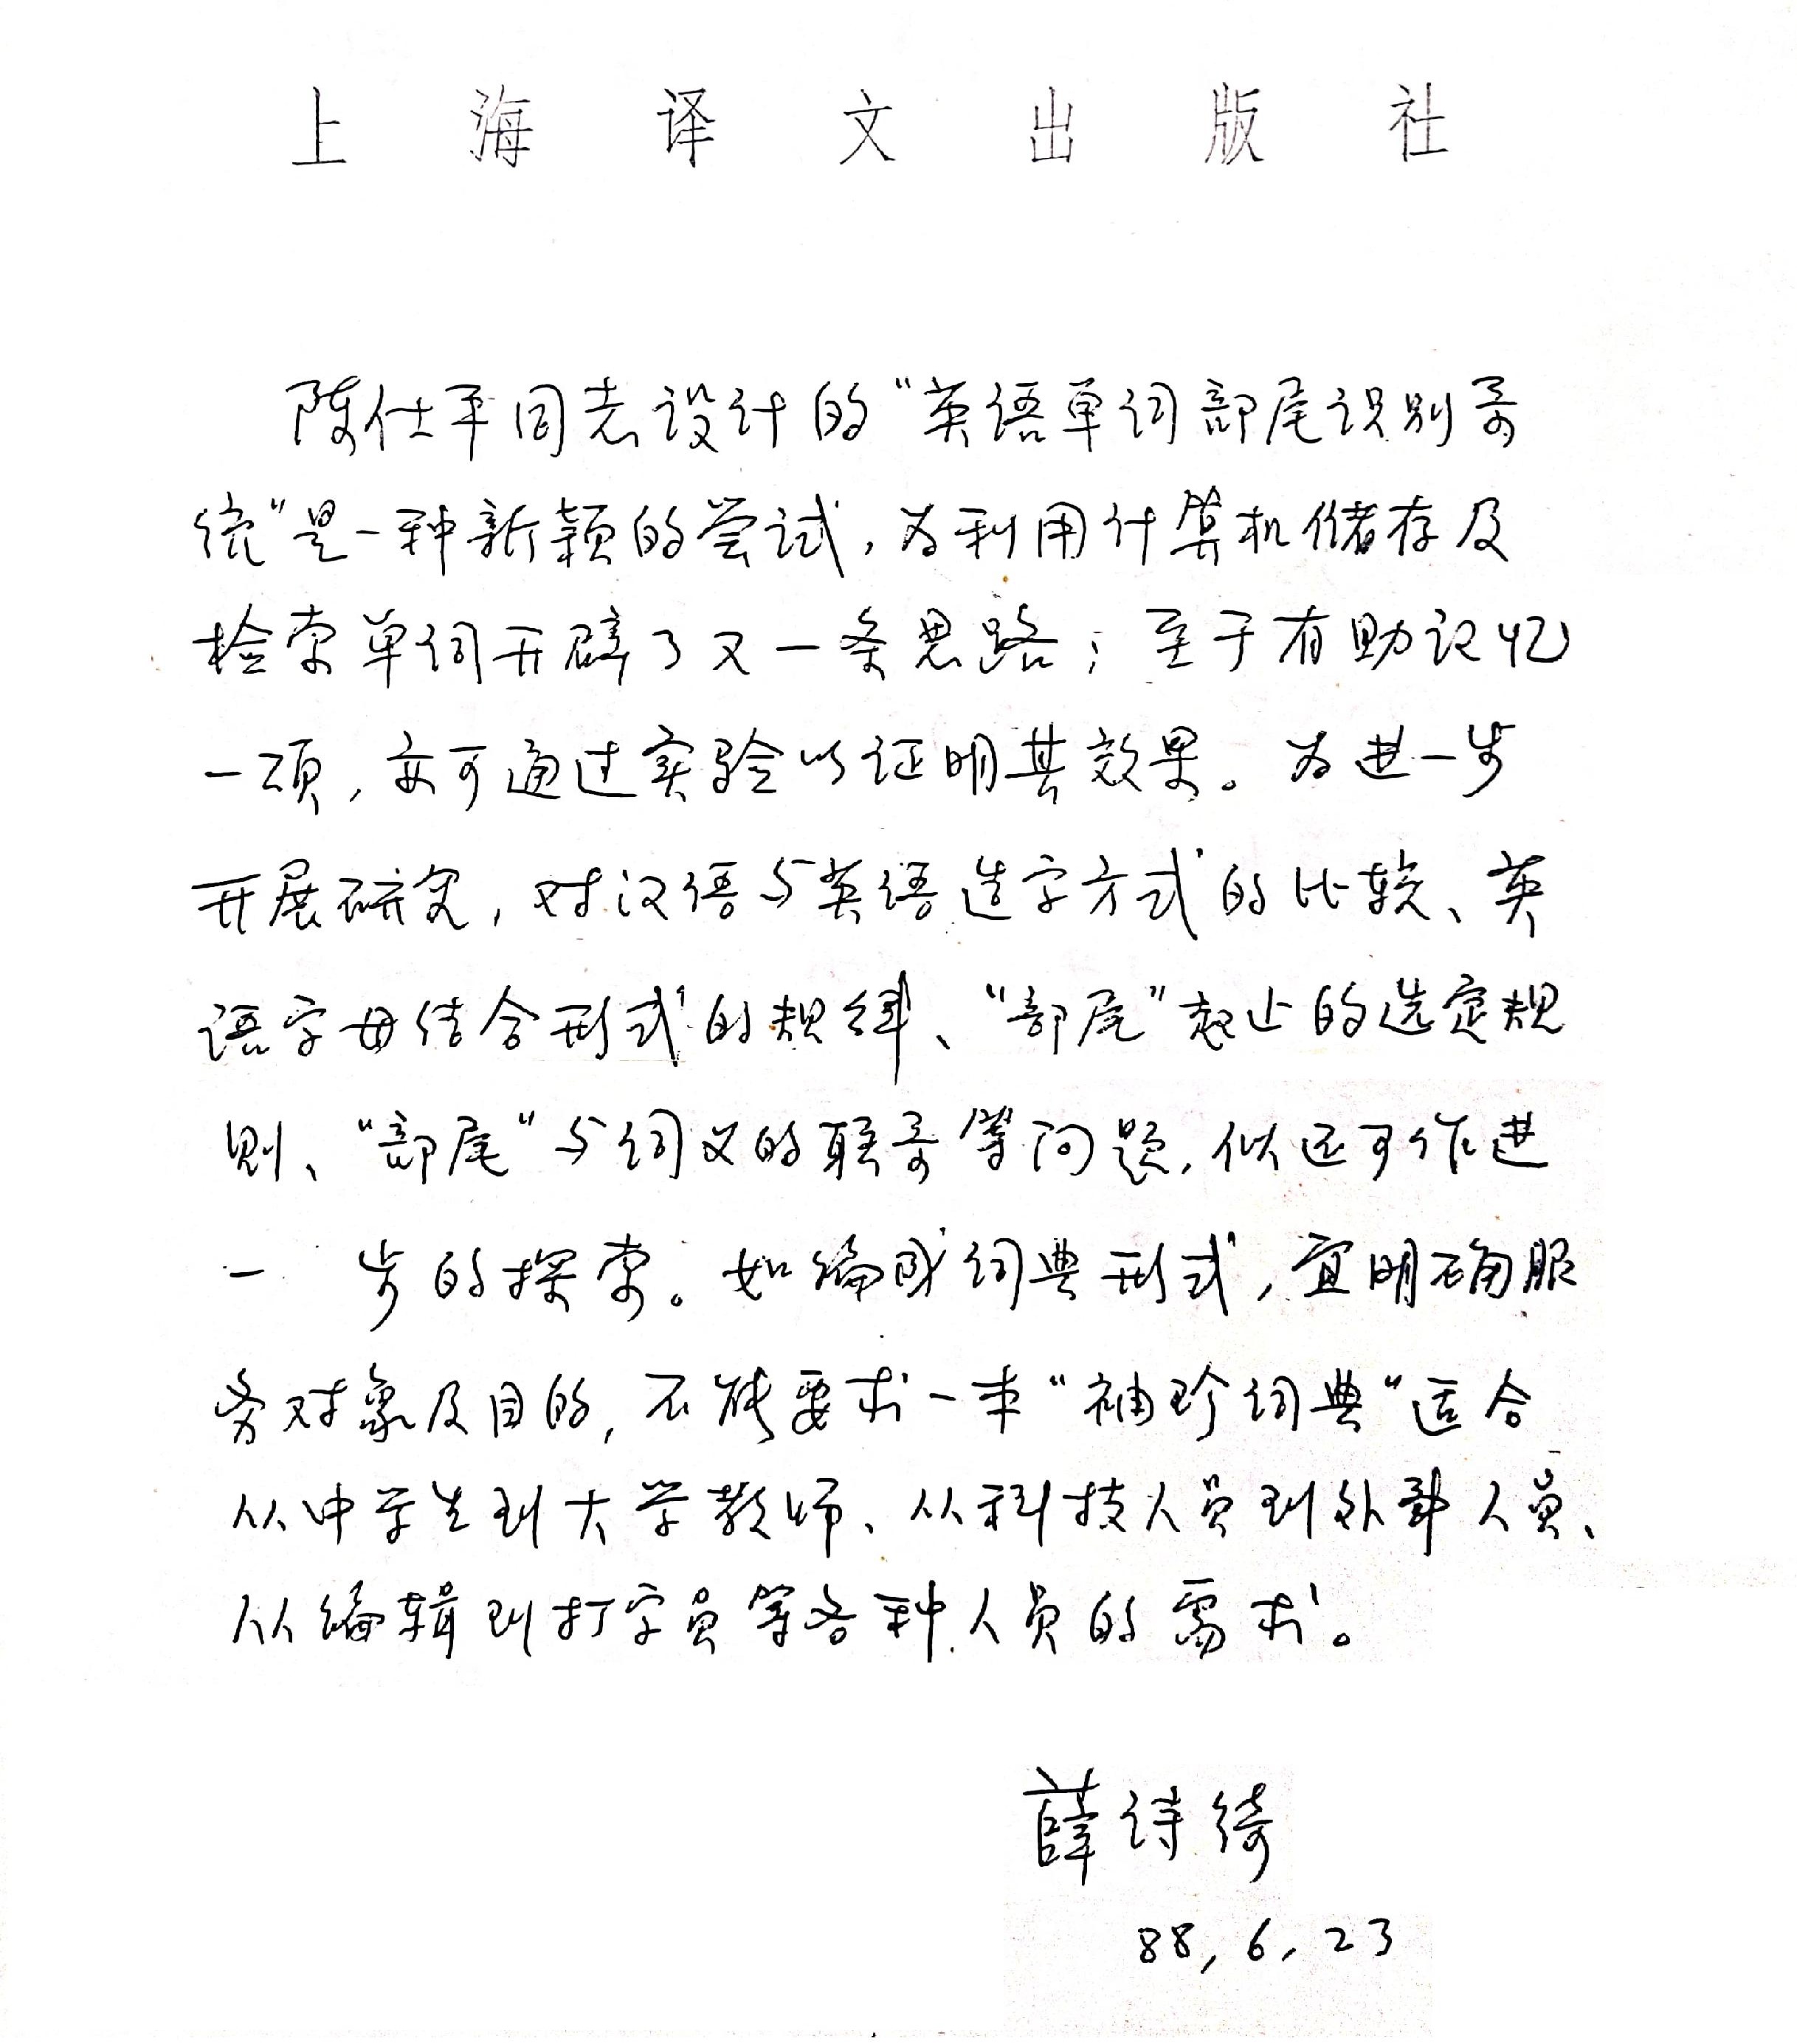 上海译文出版社
陈仕平同志设计的“英语单词部尾识别系
统”是一种新颖的尝试，为利用计算机储存及
检索单词开辟了又一条思路；至于有助记忆
一项，亦可通过实验以证明其效果。为进一步
开展研究，对汉语与英语造字方式的比较、英
语字母结合形式的规律、“部尾”起止的选定规
则、“部尾”与词义的联系等问题，似还可作进
一步的探索。如编成词典形式，宜明确服
务对象及目的，不能要求一本“袖珍词典”适合
从中学生到大学教师、从科技人员到外事人员、
从编辑到打字员等各种人员的需求。
薛诗绮
88，6，23